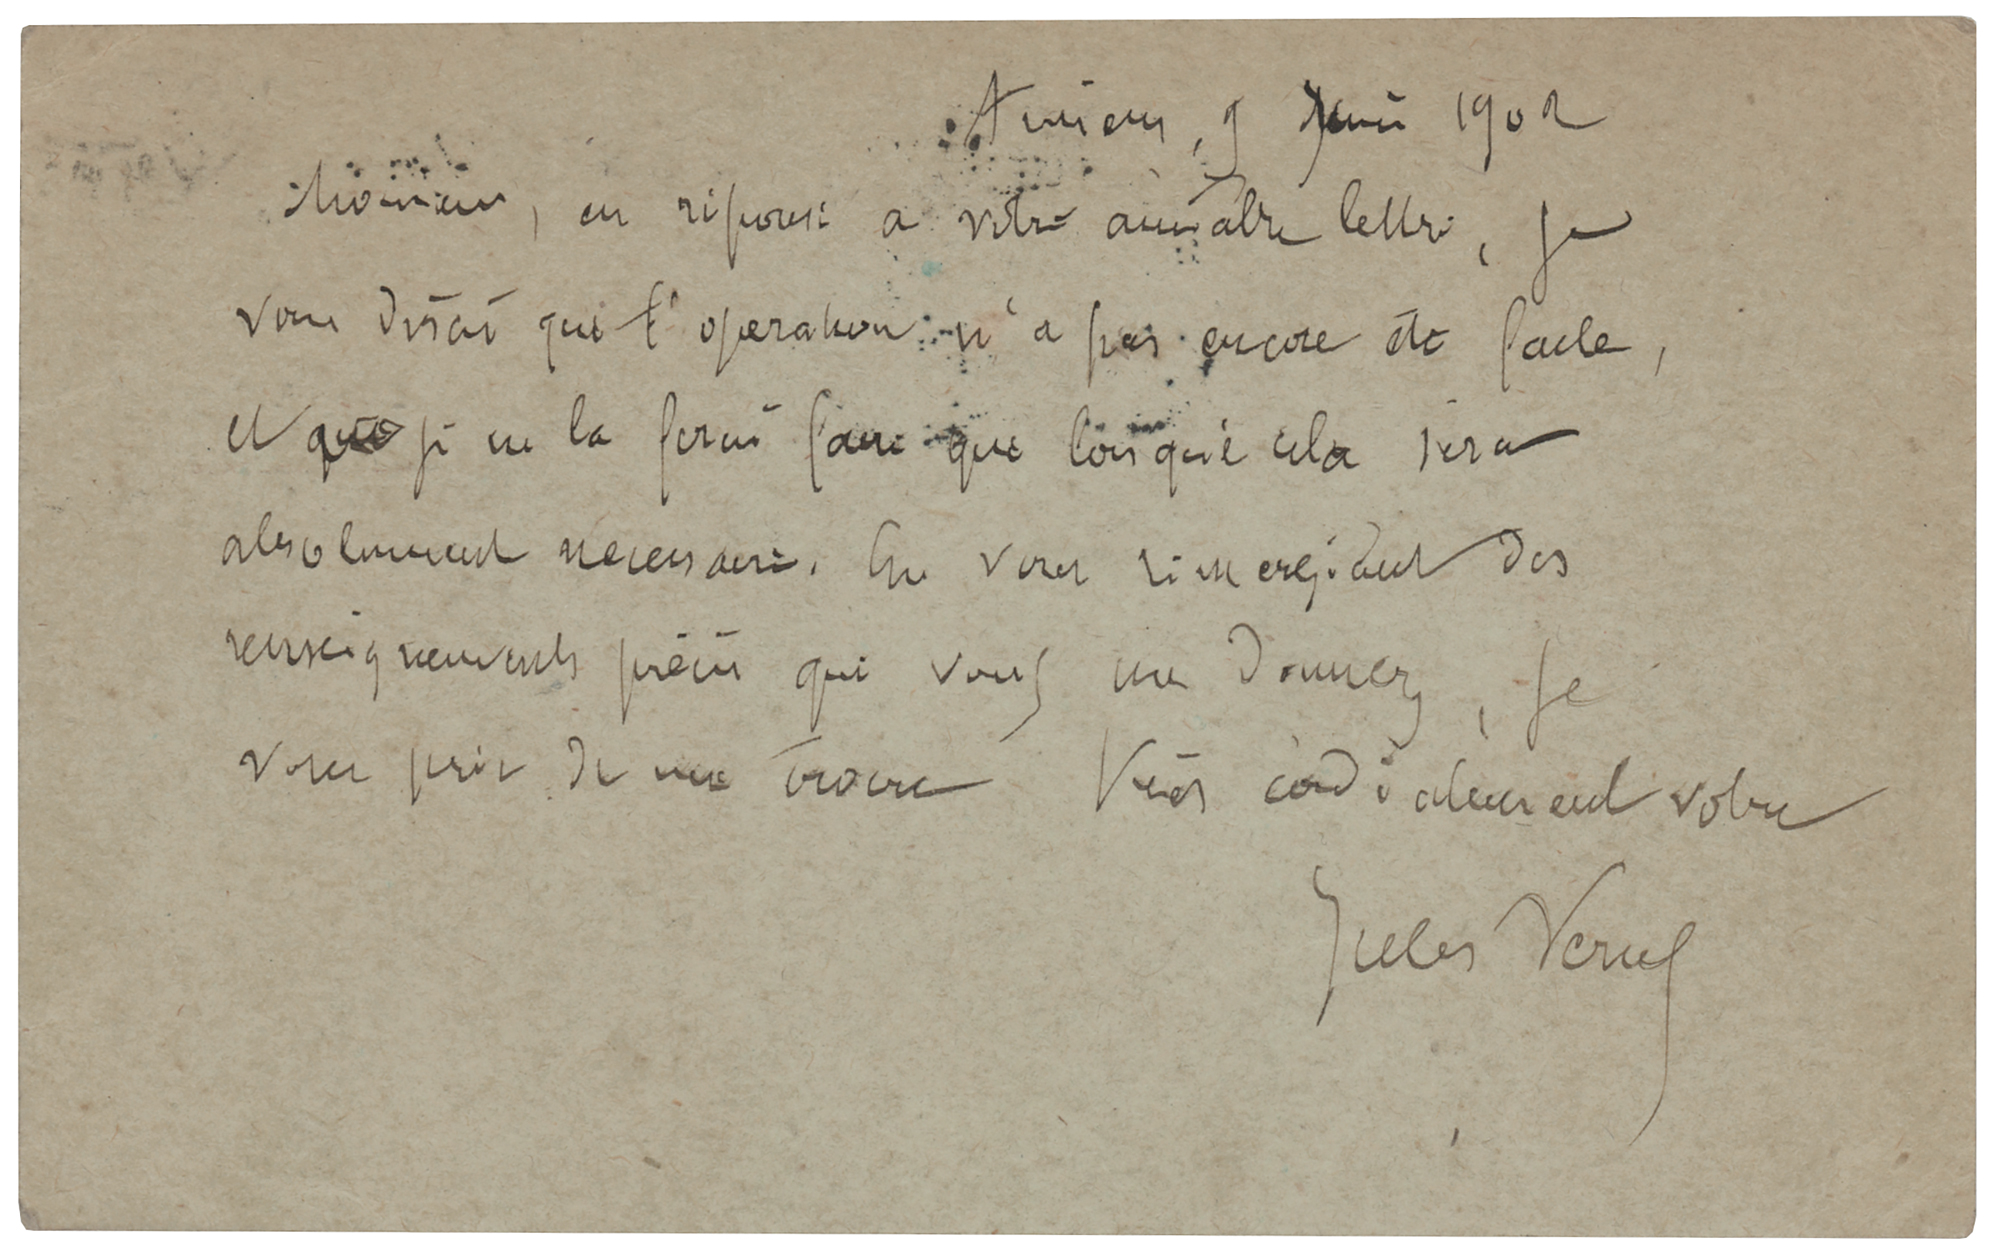 Amiens, 9 Juin 1902
Monsieur, en réponse à votre aimable lettre, je
vous dirai que l'opération n'a pas encore été faite,
et que je ne la ferai faire que lorsque cela sera
absolument nécessaire. En vous remerciant des
renseignements précis que vous me donnez, je
vous prie de me croire très cordialement votre
Jules Verne